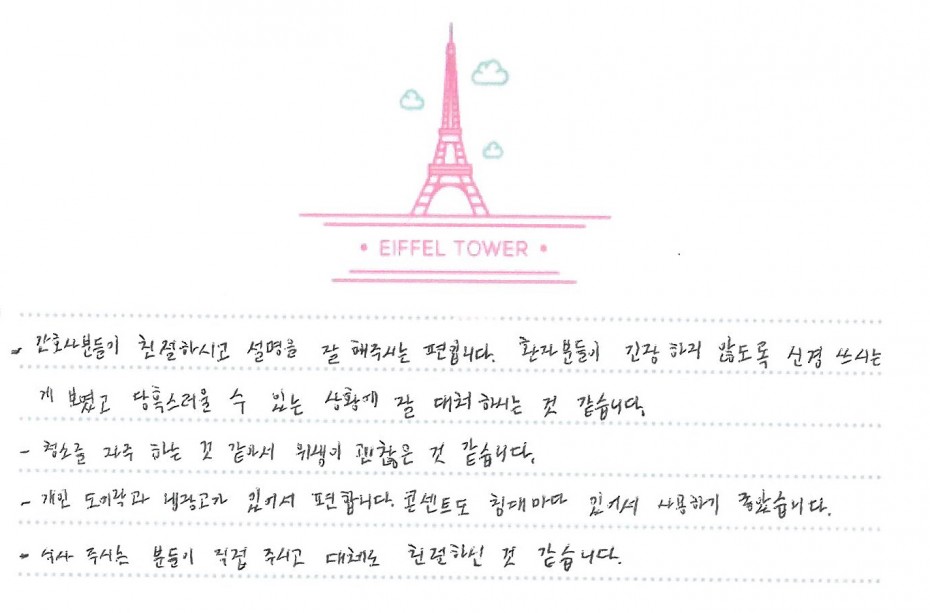 • EIFFEL TOWER •
- 간호사분들이 친절하시고 설명을 잘 해주시는 편입니다. 환자분들이 긴장 하지 않도록 신경 쓰시는
게 보였고 당혹스러울 수 있는 상황에 잘 대처하시는 것 같습니다.
- 청소를 자주 하는 것 같아서 위생이 괜찮은 것 같습니다.
- 개인 도어락과 냉장고가 있어서 편합니다. 콘센트도 침대마다 있어서 사용하기 좋았습니다.
- 식사 주시는 분들이 직접 주시고 대체로 친절하신 것 같습니다.